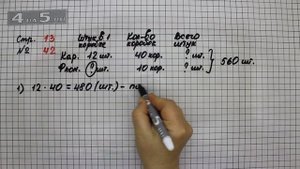 4 на 5
Стр. 13 Штук в 1 Кол-во Всего
№ 42 коробке коробок штук
Кар. 12 шт. 40 кор. ? шт.
Флом. ? шт. 10 кор. ? шт. } 560 шт.
1) 12 · 40 = 480 (шт.) -